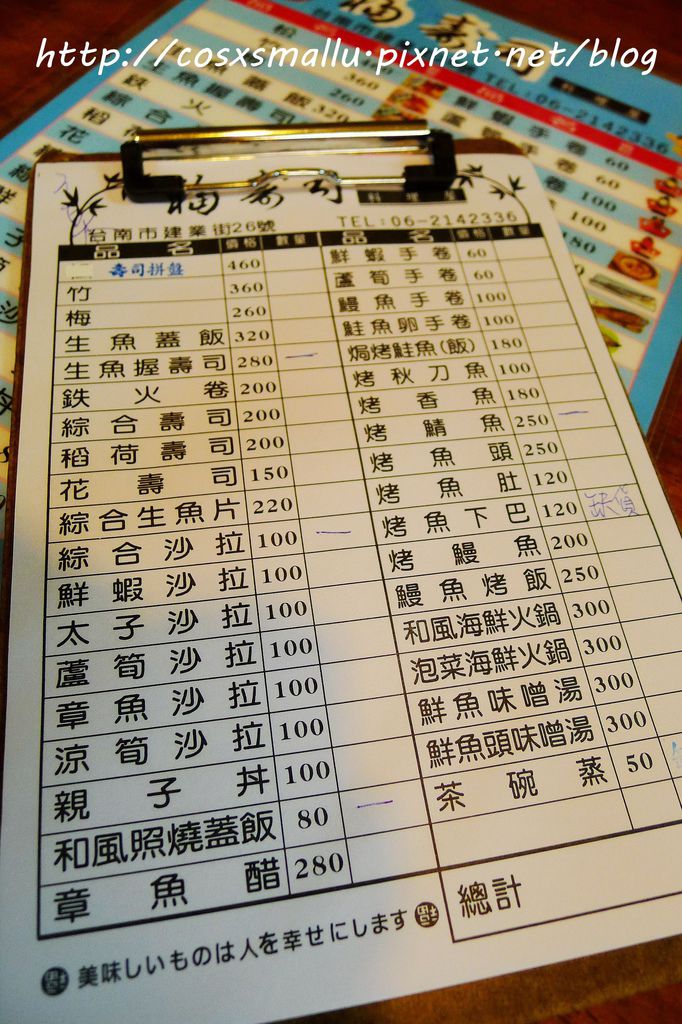 http://cosxsmallu.pixnet.net/blog
福壽司
料理屋
台南市建業街26號 TEL:06-2142336
品名 價格 數量
壽司拼盤 460
竹 360
梅 260
生魚蓋飯 320
生魚握壽司 280 一
鉄火卷 200
綜合壽司 200
稻荷壽司 200
花壽司 150
綜合生魚片 220
綜合沙拉 100 一
鮮蝦沙拉 100
太子沙拉 100
蘆筍沙拉 100
章魚沙拉 100
涼筍沙拉 100
親子丼 100
和風照燒蓋飯 80 一
章魚醋 280
品名 價格 數量
鮮蝦手卷 60
蘆筍手卷 60
鰻魚手卷 100
鮭魚卵手卷 100
焗烤鮭魚(飯) 180
烤秋刀魚 100
烤香魚 180
烤鯖魚 250 一
烤魚頭 250
烤魚肚 120
烤魚下巴 120 缺貨
烤鰻魚 200
鰻魚烤飯 250
和風海鮮火鍋 300
泡菜海鮮火鍋 300
鮮魚味噌湯 300
鮮魚頭味噌湯 300
茶碗蒸 50
總計
美味しいものは人を幸せにします